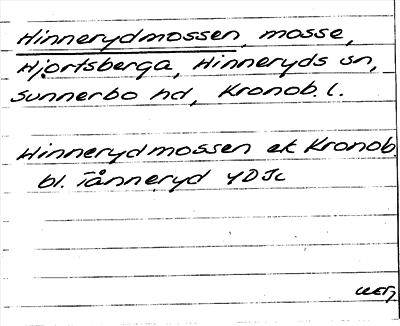 Hinnerydmossen, mosse,
Hjortsberga, Hinneryds sn,
Sunnerbo hd, Kronob. l.
Hinnerydmossen ek Kronob
bl. Tånneryd 4D5c